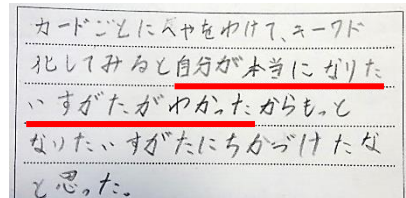 カードごとにへやをわけて、キーワド
化してみると自分が本当になりた
いすがたがわかったからもっと
なりたいすがたにちかづけたな
と思った。